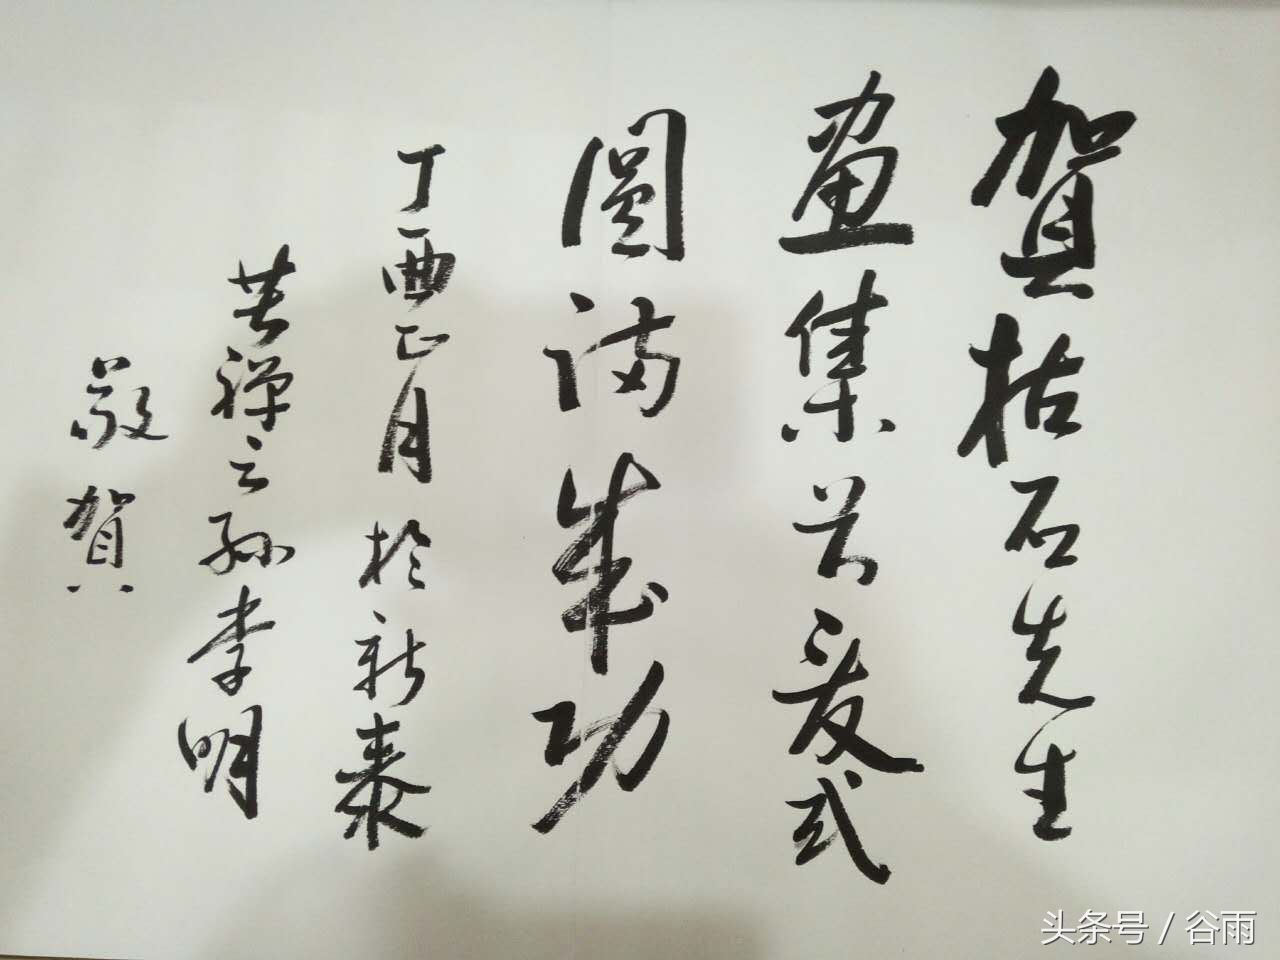 賀枯石先生
画集首發式
圓满成功
丁酉正月於新泰
苦禅之孙李明
敬賀
头条号 / 谷雨